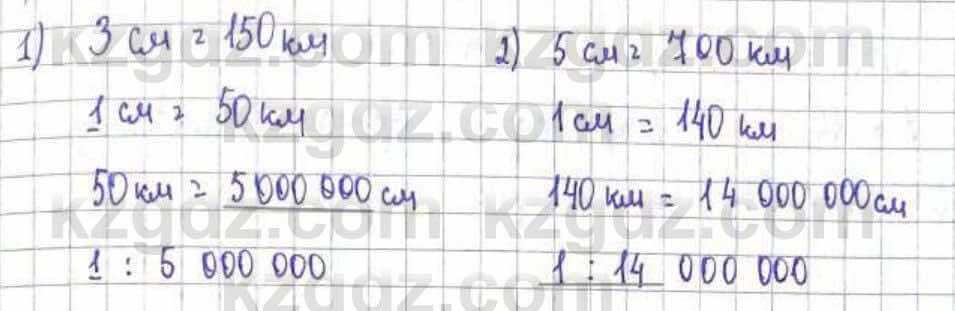 1) 3 см = 150 км
1 см = 50 км
50 км = 5 000 000 см
1 : 5 000 000
2) 5 см = 700 км
1 см = 140 км
140 км = 14 000 000 см
1 : 14 000 000
kzgdz.com